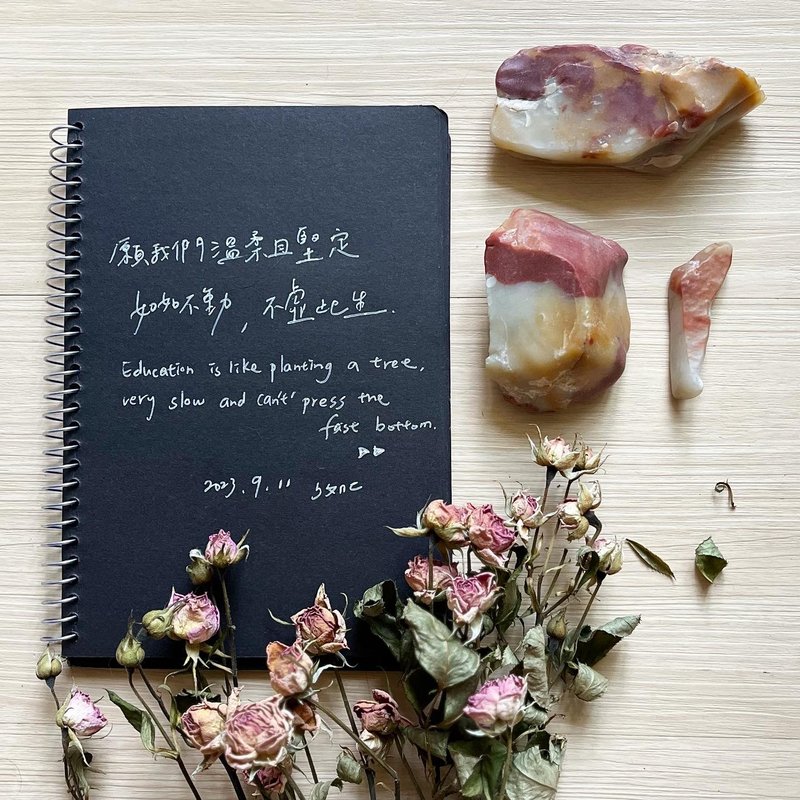 願我們溫柔且堅定
如如不動，不虛此生.
Education is like planting a tree,
very slow and can't press the
fast bottom.
▷▷
2023.9.11